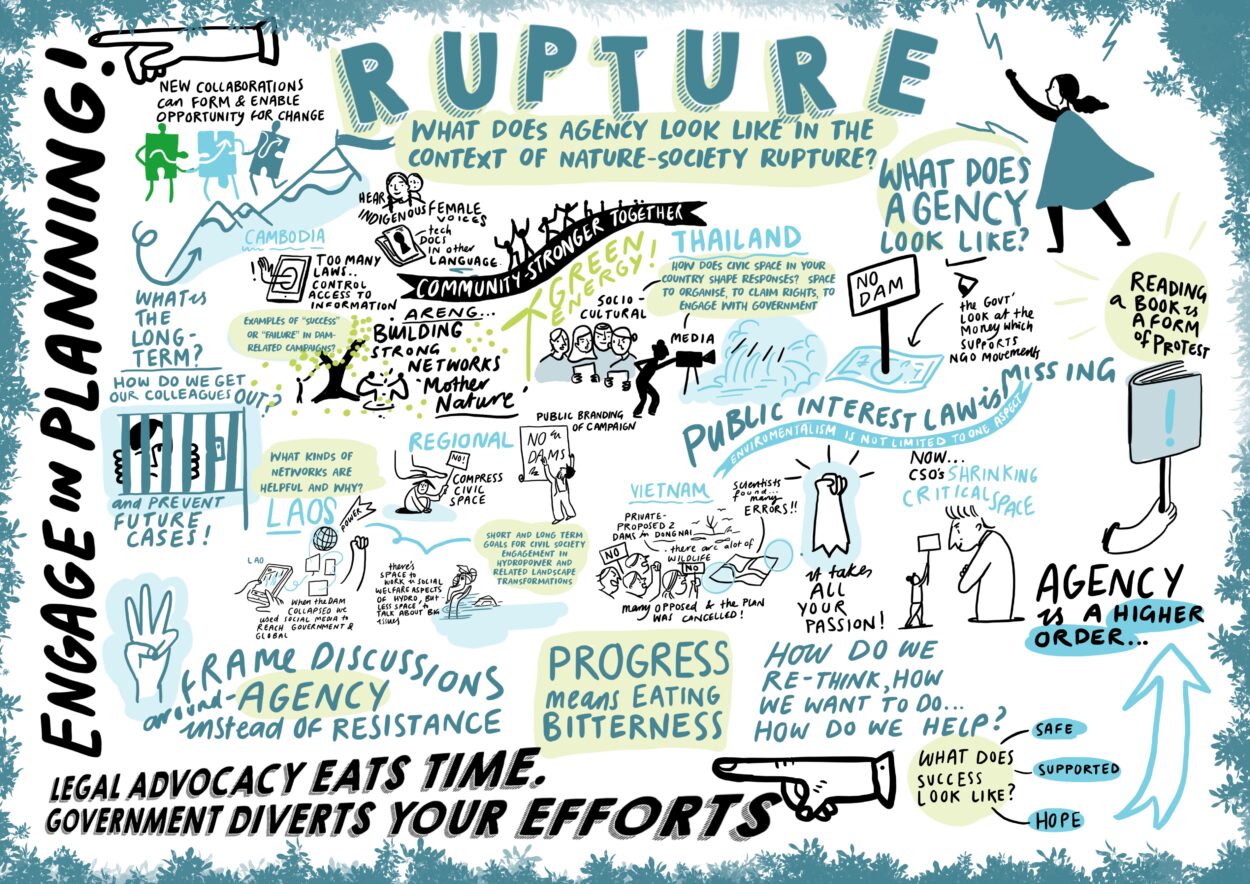 RUPTURE
WHAT DOES AGENCY LOOK LIKE IN THE
CONTEXT OF NATURE-SOCIETY RUPTURE?
ENGAGE IN PLANNING!
NEW COLLABORATIONS
can FORM & ENABLE
OPPORTUNITY FOR CHANGE
HEAR
INDIGENOUS FEMALE
VOICES
tech
DOCS
in other
LANGUAGE
COMMUNITY STRONGER TOGETHER
CAMBODIA
TOO MANY
LAWS..
CONTROL
ACCESS TO
INFORMATION
WHAT is
THE
LONG-
TERM?
EXAMPLES OF "SUCCESS"
OR "FAILURE" IN DAM-
RELATED CAMPAIGNS?
ARENG...
BUILDING
STRONG
NETWORKS
'Mother
Nature'
GREEN
ENERGY!
SOCIO-
CULTURAL
THAILAND
HOW DOES CIVIC SPACE IN YOUR
COUNTRY SHAPE RESPONSES? SPACE
TO ORGANISE, TO CLAIM RIGHTS, TO
ENGAGE WITH GOVERNMENT
MEDIA
PUBLIC BRANDING
OF CAMPAIGN
WHAT DOES
AGENCY
LOOK LIKE?
NO
DAM
the GOVT'
LOOK at the
Money which
SUPPORTS
NGO Movements
READING
a BOOK is
A FORM
of PROTEST
!
PUBLIC INTEREST LAW is MISSING
ENVIRUMENTALISM IS NOT LIMITED TO ONE ASPECT
HOW DO WE GET
OUR COLLEAGUES OUT?
and PREVENT
FUTURE
CASES!
WHAT KINDS OF
NETWORKS ARE
HELPFUL AND WHY?
REGIONAL
NO!
COMPRESS
CIVIC
SPACE
NO
DAMS
LAOS
POWER
LAO
When the DAM
COLLAPSED we
used SOCIAL MEDIA to
REACH GOVERNMENT &
GLOBAL
there's
SPACE to
WORK in SOCIAL
WELFARE ASPECTS
OF HYDRO, BUT
LESS SPACE to
TALK ABOUT BIG
ISSUES
SHORT AND LONG TERM
GOALS FOR CIVIL SOCIETY
ENGAGEMENT IN
HYDROPOWER AND
RELATED LANDSCAPE
TRANSFORMATIONS
VIETNAM
PRIVATE-
PROPOSED 2
DAMS in DONGNAI
scientists
found...
many
ERRORS!!
there are alot of
WILDLIFE
NO
NO
many OPPOSED & the PLAN
WAS CANCELLED!
it takes
ALL
YOUR
PASSION!
NOW...
CSO's SHRINKING
CRITICAL SPACE
AGENCY
is A HIGHER
ORDER...
FRAME DISCUSSIONS
around AGENCY
instead OF RESISTANCE
PROGRESS
means EATING
BITTERNESS
HOW DO WE
RE-THINK, HOW
WE WANT TO DO...
HOW DO WE HELP?
WHAT DOES
SUCCESS
LOOK LIKE?
SAFE
SUPPORTED
HOPE
LEGAL ADVOCACY EATS TIME.
GOVERNMENT DIVERTS YOUR EFFORTS